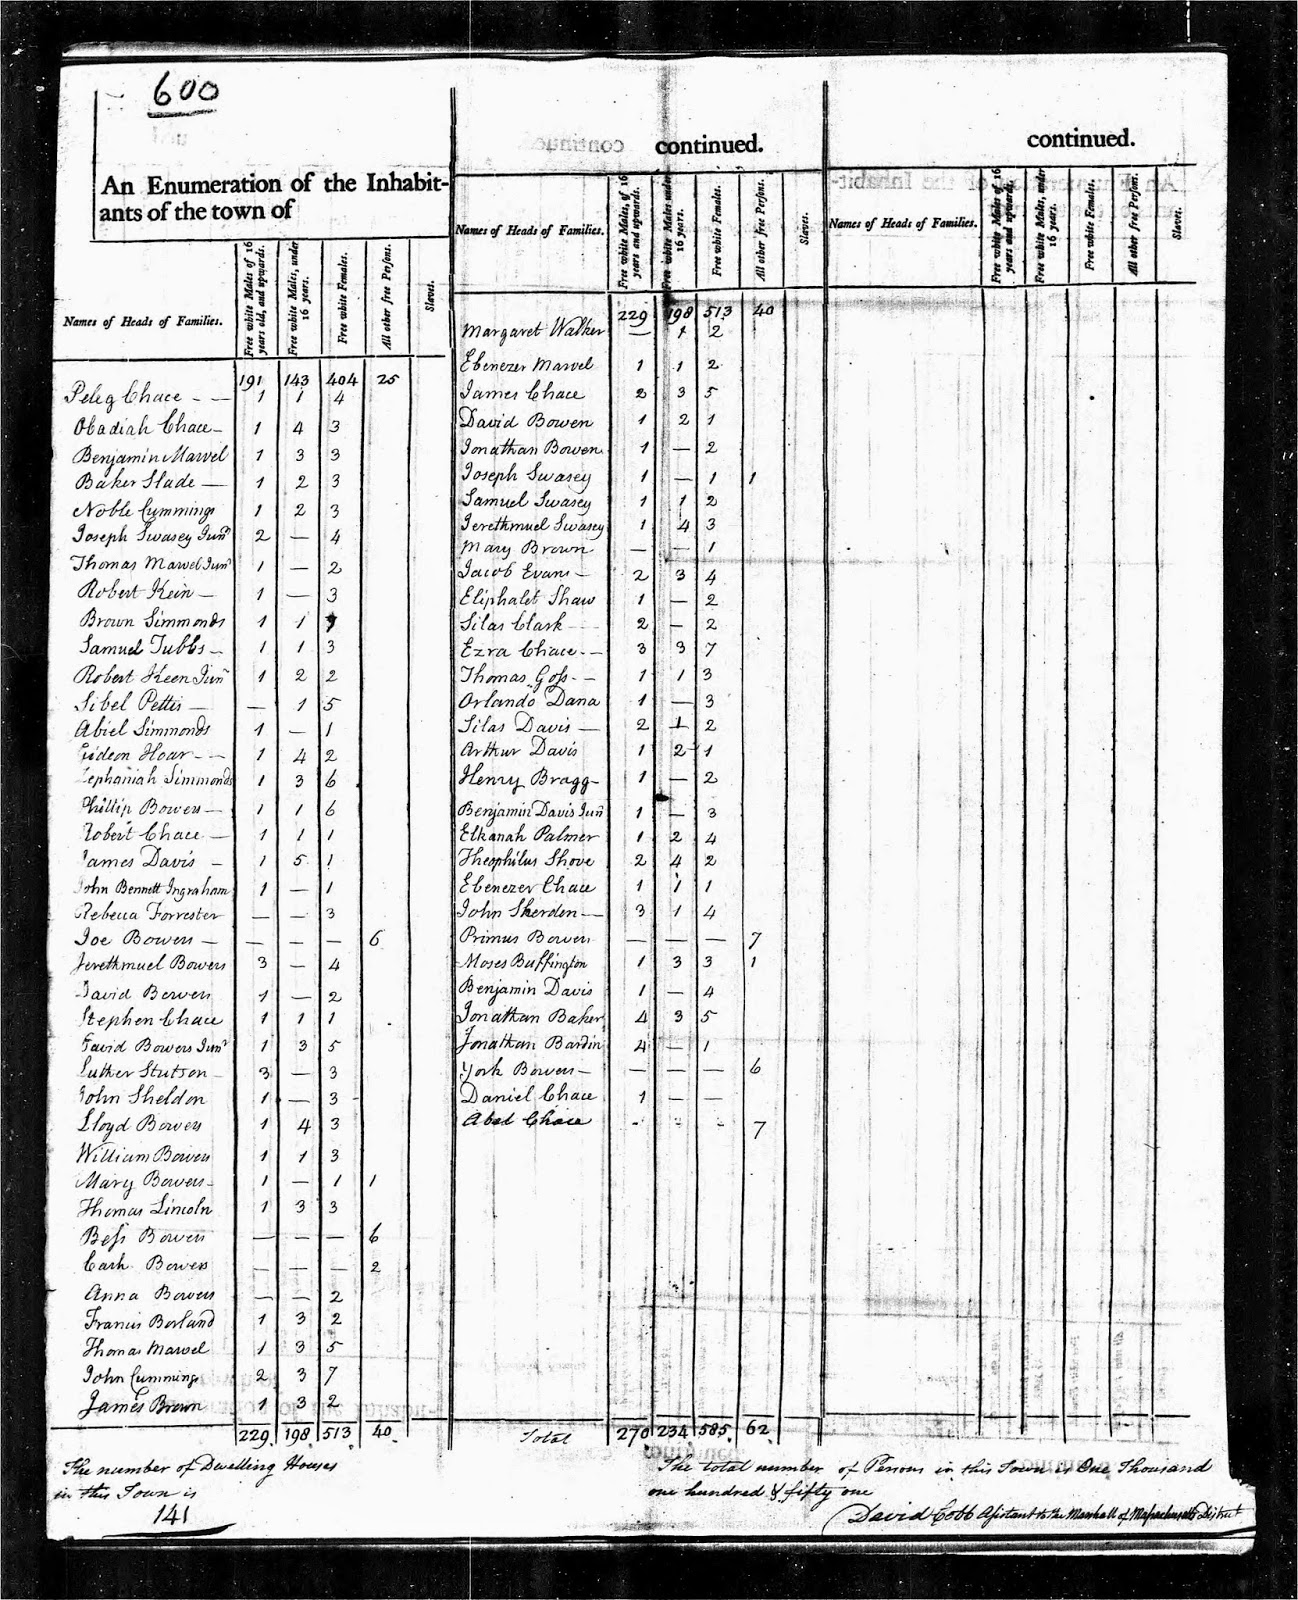 600
An Enumeration of the Inhabit-
ants of the town of
Names of Heads of Families. Free white Males of 16 years old, and upwards. Free white Males, under 16 years. Free white Females. All other free Persons. Slaves.
191 143 404 25
Peleg Chace - — 1 1 4
Obadiah Chace — 1 4 3
Benjamin Marvel 1 3 3
Baker Slade — 1 2 3
Noble Cummings 1 2 3
Joseph Swasey Junr 2 — 4
Thomas Marvel Junr 1 — 2
Robert Kein — 1 — 3
Brown Simmonds 1 1
Samuel Tubbs — 1 1 3
Robert Keen Junr 1 2 2
Sibel Pettis — — 1 5
Abiel Simmonds 1 — 1
Gideon Hoar - — 1 4 2
Zephaniah Simmonds 1 3 6
Phillip Bowers — 1 1 6
Robert Chace — 1 1 1
James Davis — 1 5 1
John Bennett Ingraham 1 — 1
Rebecca Forrester — — 3
Joe Bowers — — — — 6
Jerethmuel Bowers 3 — 4
David Bowers 1 — 2
Stephen Chace 1 1 1
David Bowers Junr 1 3 5
Luther Stutson — 3 — 3
John Sheldon 1 — 3
Lloyd Bowers 1 4 3
William Bowers 1 1 3
Mary Bowers — 1 — 1 1
Thomas Lincoln 1 3 3
Bess Bowers — — — 6
Cash Bowers — — — 2
Anna Bowers — — 2
Francis Borland 1 3 2
Thomas Marvel 1 3 5
John Cummings 2 3 7
James Brown 1 3 2
229. 198. 513. 40.
The number of Dwelling Houses
in this Town is
141
continued.
Names of Heads of Families. Free white Males, of 16 years and upwards. Free white Males under 16 years. Free white Females. All other free Persons. Slaves.
229 198 513 40
Margaret Walker — 1 2
Ebenezer Marvel 1 1 2
James Chace 2 3 5
David Bowen 1 2 1
Jonathan Bowen 1 — 2
Joseph Swasey 1 — 1 1
Samuel Swasey 1 1 2
Jerethmuel Swasey 1 4 3
Mary Brown — — 1
Jacob Evans — 2 3 4
Eliphalet Shaw 1 — 2
Silas Clark 2 — 2
Ezra Chace - — 3 3 7
Thomas Goss - — 1 1 3
Orlando Dana 1 — 3
Silas Davis — 2 1 2
Arthur Davis 1 2 1
Henry Bragg — 1 — 2
Benjamin Davis Junr 1 — 3
Elkanah Palmer 1 2 4
Theophilus Shove 2 4 2
Ebenezer Chace 1 1 1
John Sherden — 3 1 4
Primus Bowers — — — 7
Moses Buffington 1 3 3 1
Benjamin Davis 1 — 4
Jonathan Baker 4 3 5
Jonathan Bardin 4 — 1
York Bowers — — — — 6
Daniel Chace 1 — —
Abel Chace - - - 7
Total 270 234 585. 62.
The total number of Persons in this Town is One Thousand
one hundred & fifty one
David Cobb Assistant to the Marshall of Massachusetts District
continued.
Names of Heads of Families. Free white Males of 16 years and upwards. Free white Males, under 16 years. Free white Females. All other free Persons. Slaves.